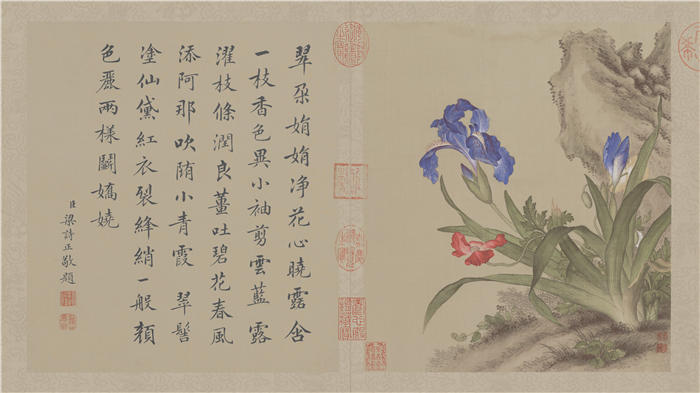 翠朶娟娟净花心曉露含
一枝香色異小袖剪雲藍露
濯枝條潤良薑吐碧花春風
添阿那吹堕小青霞 翠髻
塗仙黛紅衣裂絳綃一般顏
色麗兩樣鬭嬌嬈
臣梁詩正敬題